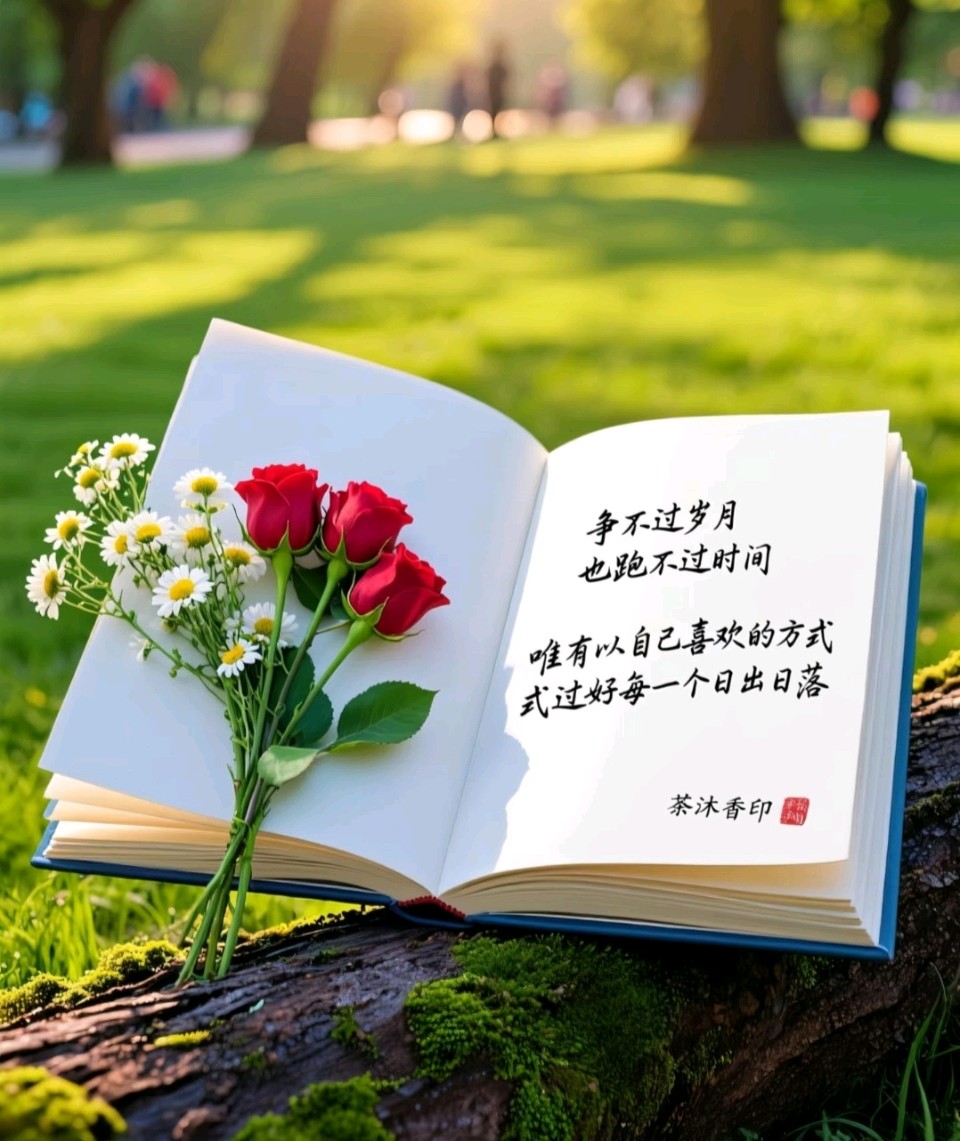 争不过岁月
也跑不过时间
唯有以自己喜欢的方式
式过好每一个日出日落
茶沐香印